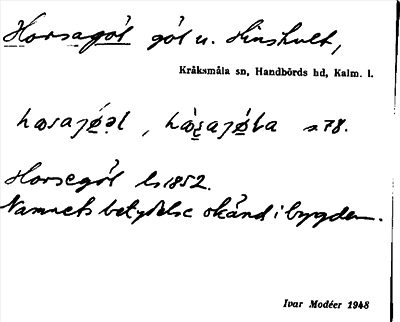 Horsagöl göl u. Hinshult,
Kråksmåla sn, Handbörds hd, Kalm. l.
s. 78.
Horsegöl ls 1852.
Namnets betydelse okänd i bygden.
Ivar Modéer 1948